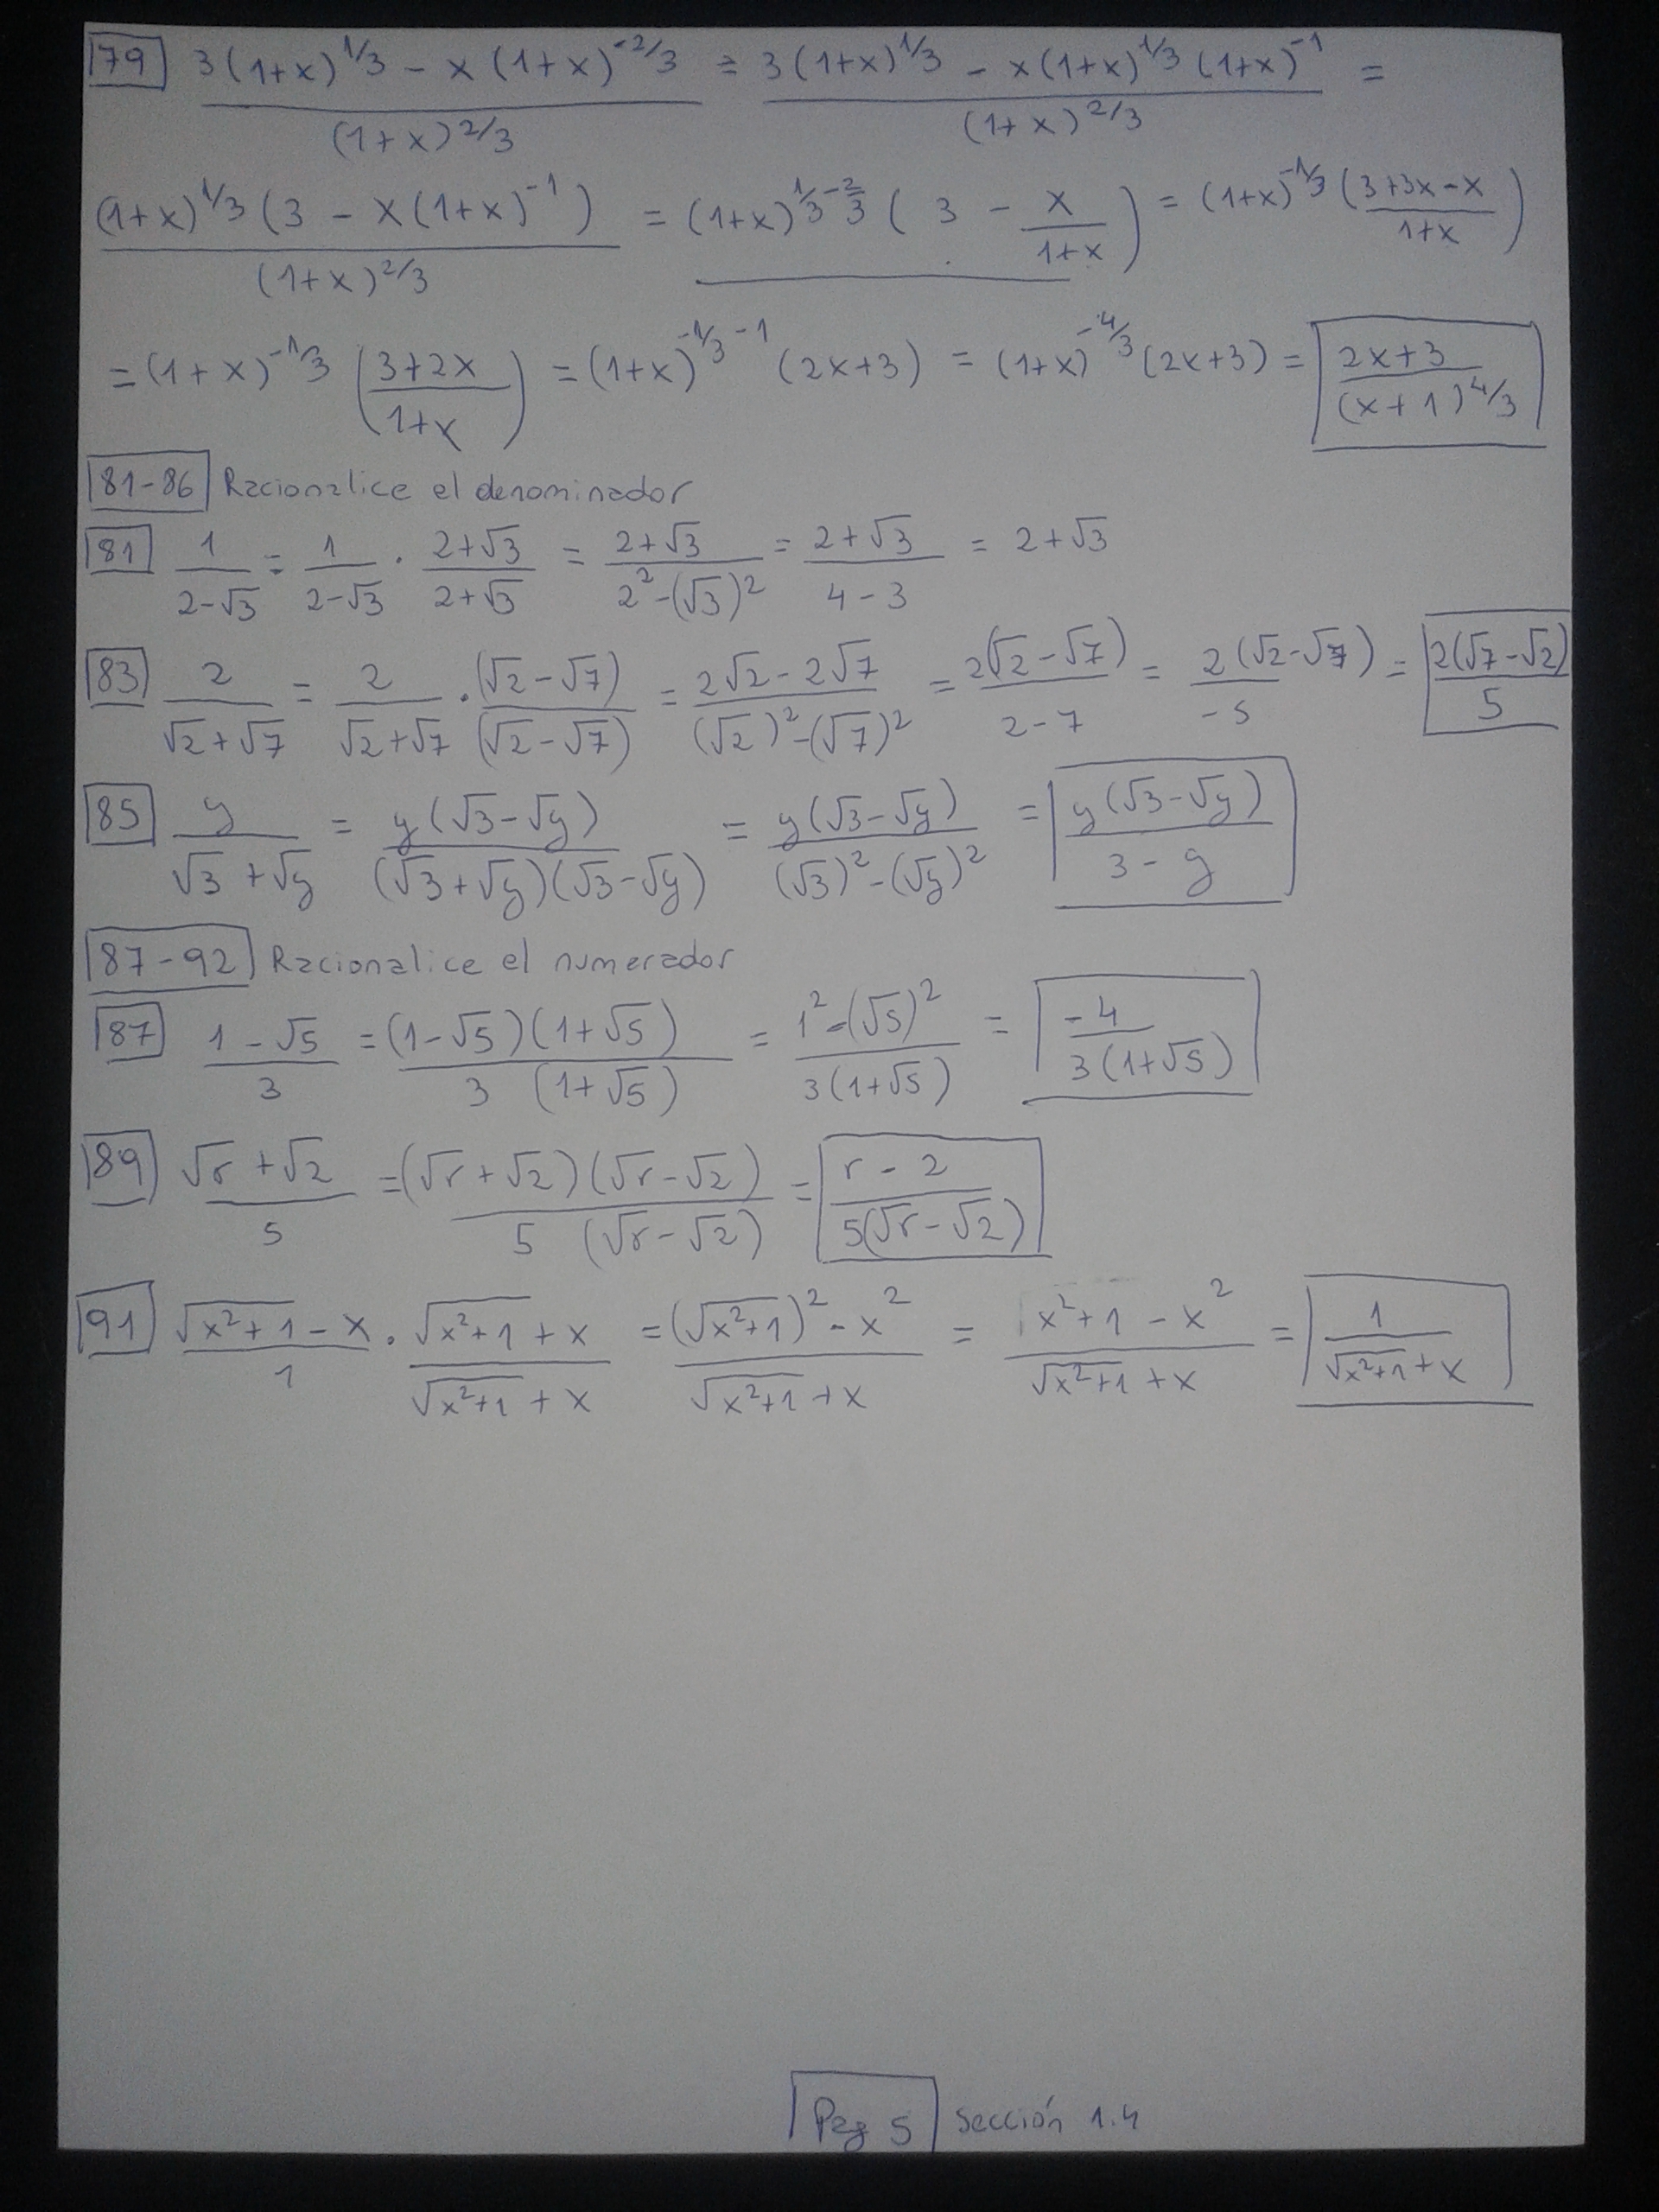 79 (3(1+x)^1/3 - x(1+x)^-2/3)/((1+x)^2/3) = (3(1+x)^1/3 - x(1+x)^1/3 (1+x)^-1)/((1+x)^2/3) =
((1+x)^1/3 (3 - x(1+x)^-1))/((1+x)^2/3) = (1+x)^(1/3 - 2/3) (3 - x/(1+x)) = (1+x)^-1/3 ((3+3x-x)/(1+x))
= (1+x)^-1/3 ((3+2x)/(1+x)) = (1+x)^(-1/3 -1) (2x+3) = (1+x)^-4/3 (2x+3) = (2x+3)/((x+1)^4/3)
81-86 Racionalice el denominador
81 1/(2-√3) = 1/(2-√3) · (2+√3)/(2+√3) = (2+√3)/(2²-(√3)²) = (2+√3)/(4-3) = 2+√3
83 2/(√2+√7) = 2/(√2+√7) · (√2-√7)/(√2-√7) = (2√2-2√7)/((√2)²-(√7)²) = 2(√2-√7)/(2-7) = 2(√2-√7)/(-5) = 2(√7-√2)/5
85 y/(√3+√y) = y(√3-√y)/((√3+√y)(√3-√y)) = y(√3-√y)/((√3)²-(√y)²) = y(√3-√y)/(3-y)
87-92 Racionalice el numerador
87 (1-√5)/3 = (1-√5)(1+√5)/(3 (1+√5)) = (1²-(√5)²)/(3(1+√5)) = -4/(3(1+√5))
89 (√r+√2)/5 = (√r+√2)(√r-√2)/(5 (√r-√2)) = (r-2)/(5(√r-√2))
91 (√(x²+1) - x)/1 · (√(x²+1) + x)/(√(x²+1) + x) = ((√(x²+1))² - x²)/(√(x²+1) + x) = (x²+1-x²)/(√(x²+1) + x) = 1/(√(x²+1) + x)
Pag 5 Sección 1.4